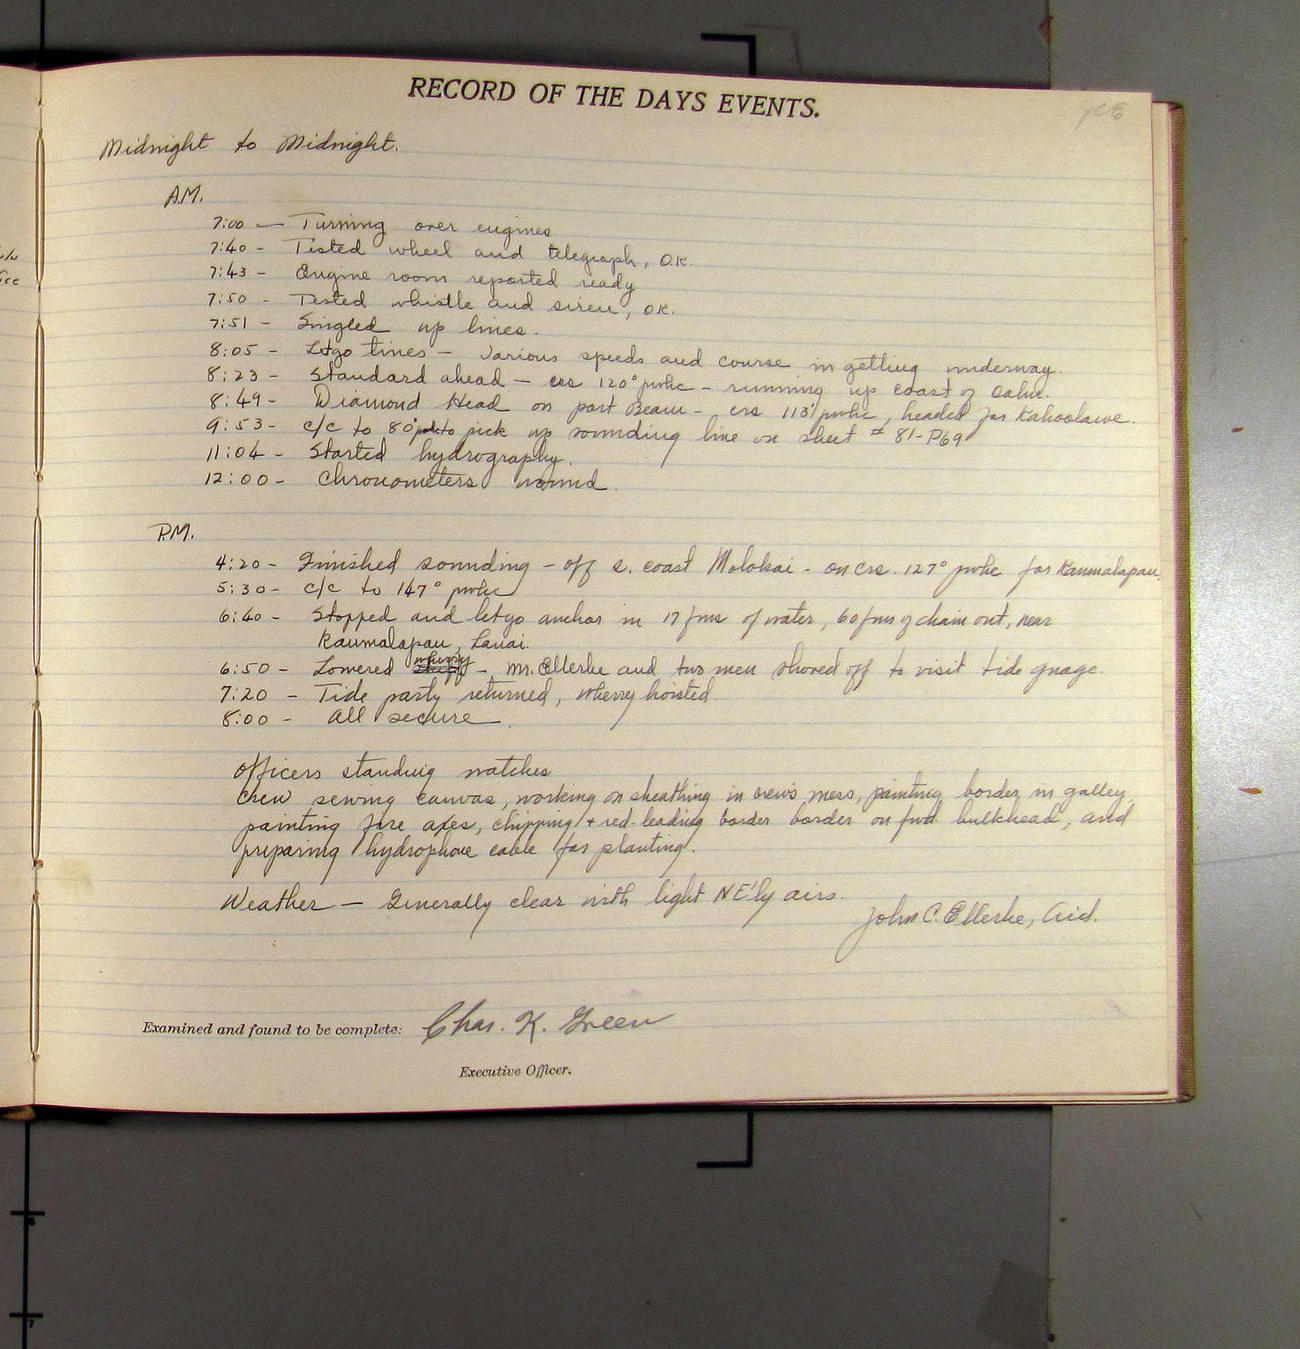 RECORD OF THE DAYS EVENTS.
Midnight to Midnight.
A.M.
7:00 — Turning over engines
7:40 - Tested wheel and telegraph, O.K.
7:43 - Engine room reported ready
7:50 - Tested whistle and siren, O.K.
7:51 - Singled up lines.
8:05 - Letgo lines - various speeds and course in getting underway.
8:23 - Standard ahead - crs 120° pwhc - running up coast of Oahu.
8:49 - Diamond Head on port beam - crs 113° pwhc, headed for Kahoolawe.
9:53 - c/c to 80° to pick up sounding line on sheet # 81-P69
11:04 - Started hydrography.
12:00 - Chronometers wound.
P.M.
4:20 - Finished sounding - off s. coast Molokai - on crs. 127° pwhc for Kaumalapau.
5:30 - c/c to 147° pwhc
6:40 - Stopped and letgo anchor in 17 fms of water, 60 fms of chain out, near
Kaumalapau, Lanai.
6:50 - Lowered wherry - Mr. Ellerbe and two men shoved off to visit tide guage.
7:20 - Tide party returned, wherry hoisted.
8:00 - All secure.
Officers standing watches
Crew sewing canvas, working on sheathing in crew's mess, painting border in galley,
painting fire axes, chipping + red-leading border border on fwd bulkhead, and
preparing hydrophone cable for planting.
Weather — Generally clear with light NE'ly airs.
John C. Ellerbe, Aid.
Examined and found to be complete: Chas. K. Green
Executive Officer.